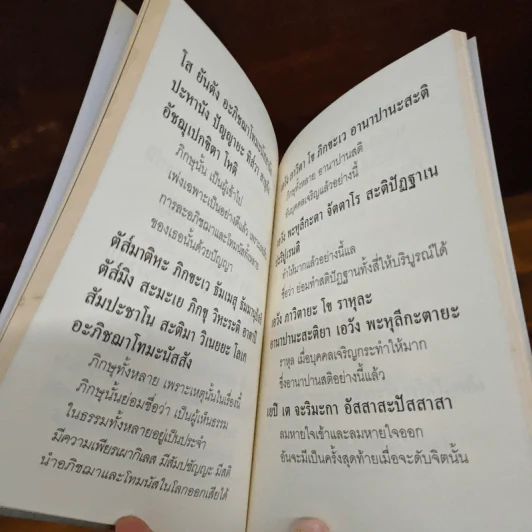 โส ยันตัง อะภิชฌาโทมะนัสสานัง
ปะหานัง ปัญญายะ ทิส๎วา
อัชฌุเปกขิตา โหติ
ภิกษุนั้น เป็นผู้เข้าไป
เพ่งเฉพาะเป็นอย่างดีแล้ว
การละอภิชฌาและโทมนัสทั้งหลาย
ของเธอนั้นด้วยปัญญา
ตัส๎มาติหะ ภิกขะเว ธัมเมสุ
ตัส๎มิง สะมะเย ภิกขุ วิหะระติ อาตาปี
สัมปะชาโน สะติมา วิเนยยะ โลเก
อะภิชฌาโทมะนัสสัง
ภิกษุทั้งหลาย เพราะเหตุนั้นในเรื่องนี้
ภิกษุนั้นย่อมชื่อว่า เป็นผู้เห็นธรรม
ในธรรมทั้งหลายอยู่เป็นประจำ
มีความเพียรเผากิเลส มีสัมปชัญญะ มีสติ
นำอภิชฌาและโทมนัสในโลกออกเสียได้
ภาวิตา โข ภิกขะเว อานาปานะสะติ
ภิกษุทั้งหลาย อานาปานสติ
อันบุคคลเจริญแล้วอย่างนี้
เอวัง พะหุลีกะตา จัตตาโร สะติปัฏฐาเน
ทำให้มากแล้วอย่างนี้แล
ชื่อว่า ย่อมทำสติปัฏฐานทั้งสี่ให้บริบูรณ์ได้
เอวัง ภาวิตายะ โข ราหุละ
อานาปานะสะติยา เอวัง พะหุลีกะตายะ
ราหุล เมื่อบุคคลเจริญกระทำให้มาก
ซึ่งอานาปานสติอย่างนี้แล้ว
เยปิ เต จะริมะกา อัสสาสะปัสสาสา
ลมหายใจเข้าและลมหายใจออก
อันจะมีเป็นครั้งสุดท้ายเมื่อจะดับจิตนั้น